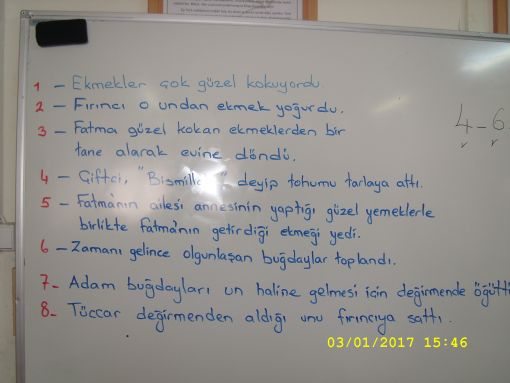 1 - Ekmekler çok güzel kokuyordu.
2 - Fırıncı o undan ekmek yoğurdu.
3 - Fatma güzel kokan ekmeklerden bir
tane alarak evine döndü.
4 - Çiftçi, "Bismille " deyip tohumu tarlaya attı.
5 - Fatma'nın ailesi annesinin yaptığı güzel yemeklerle
birlikte Fatma'nın getirdiği ekmeği yedi.
6 - Zamanı gelince olgunlaşan buğdaylar toplandı.
7- Adam buğdayları un haline gelmesi için değirmende öğütti
8- Tüccar değirmenden aldığı unu fırıncıya sattı.
4-6
03/01/2017 15:46